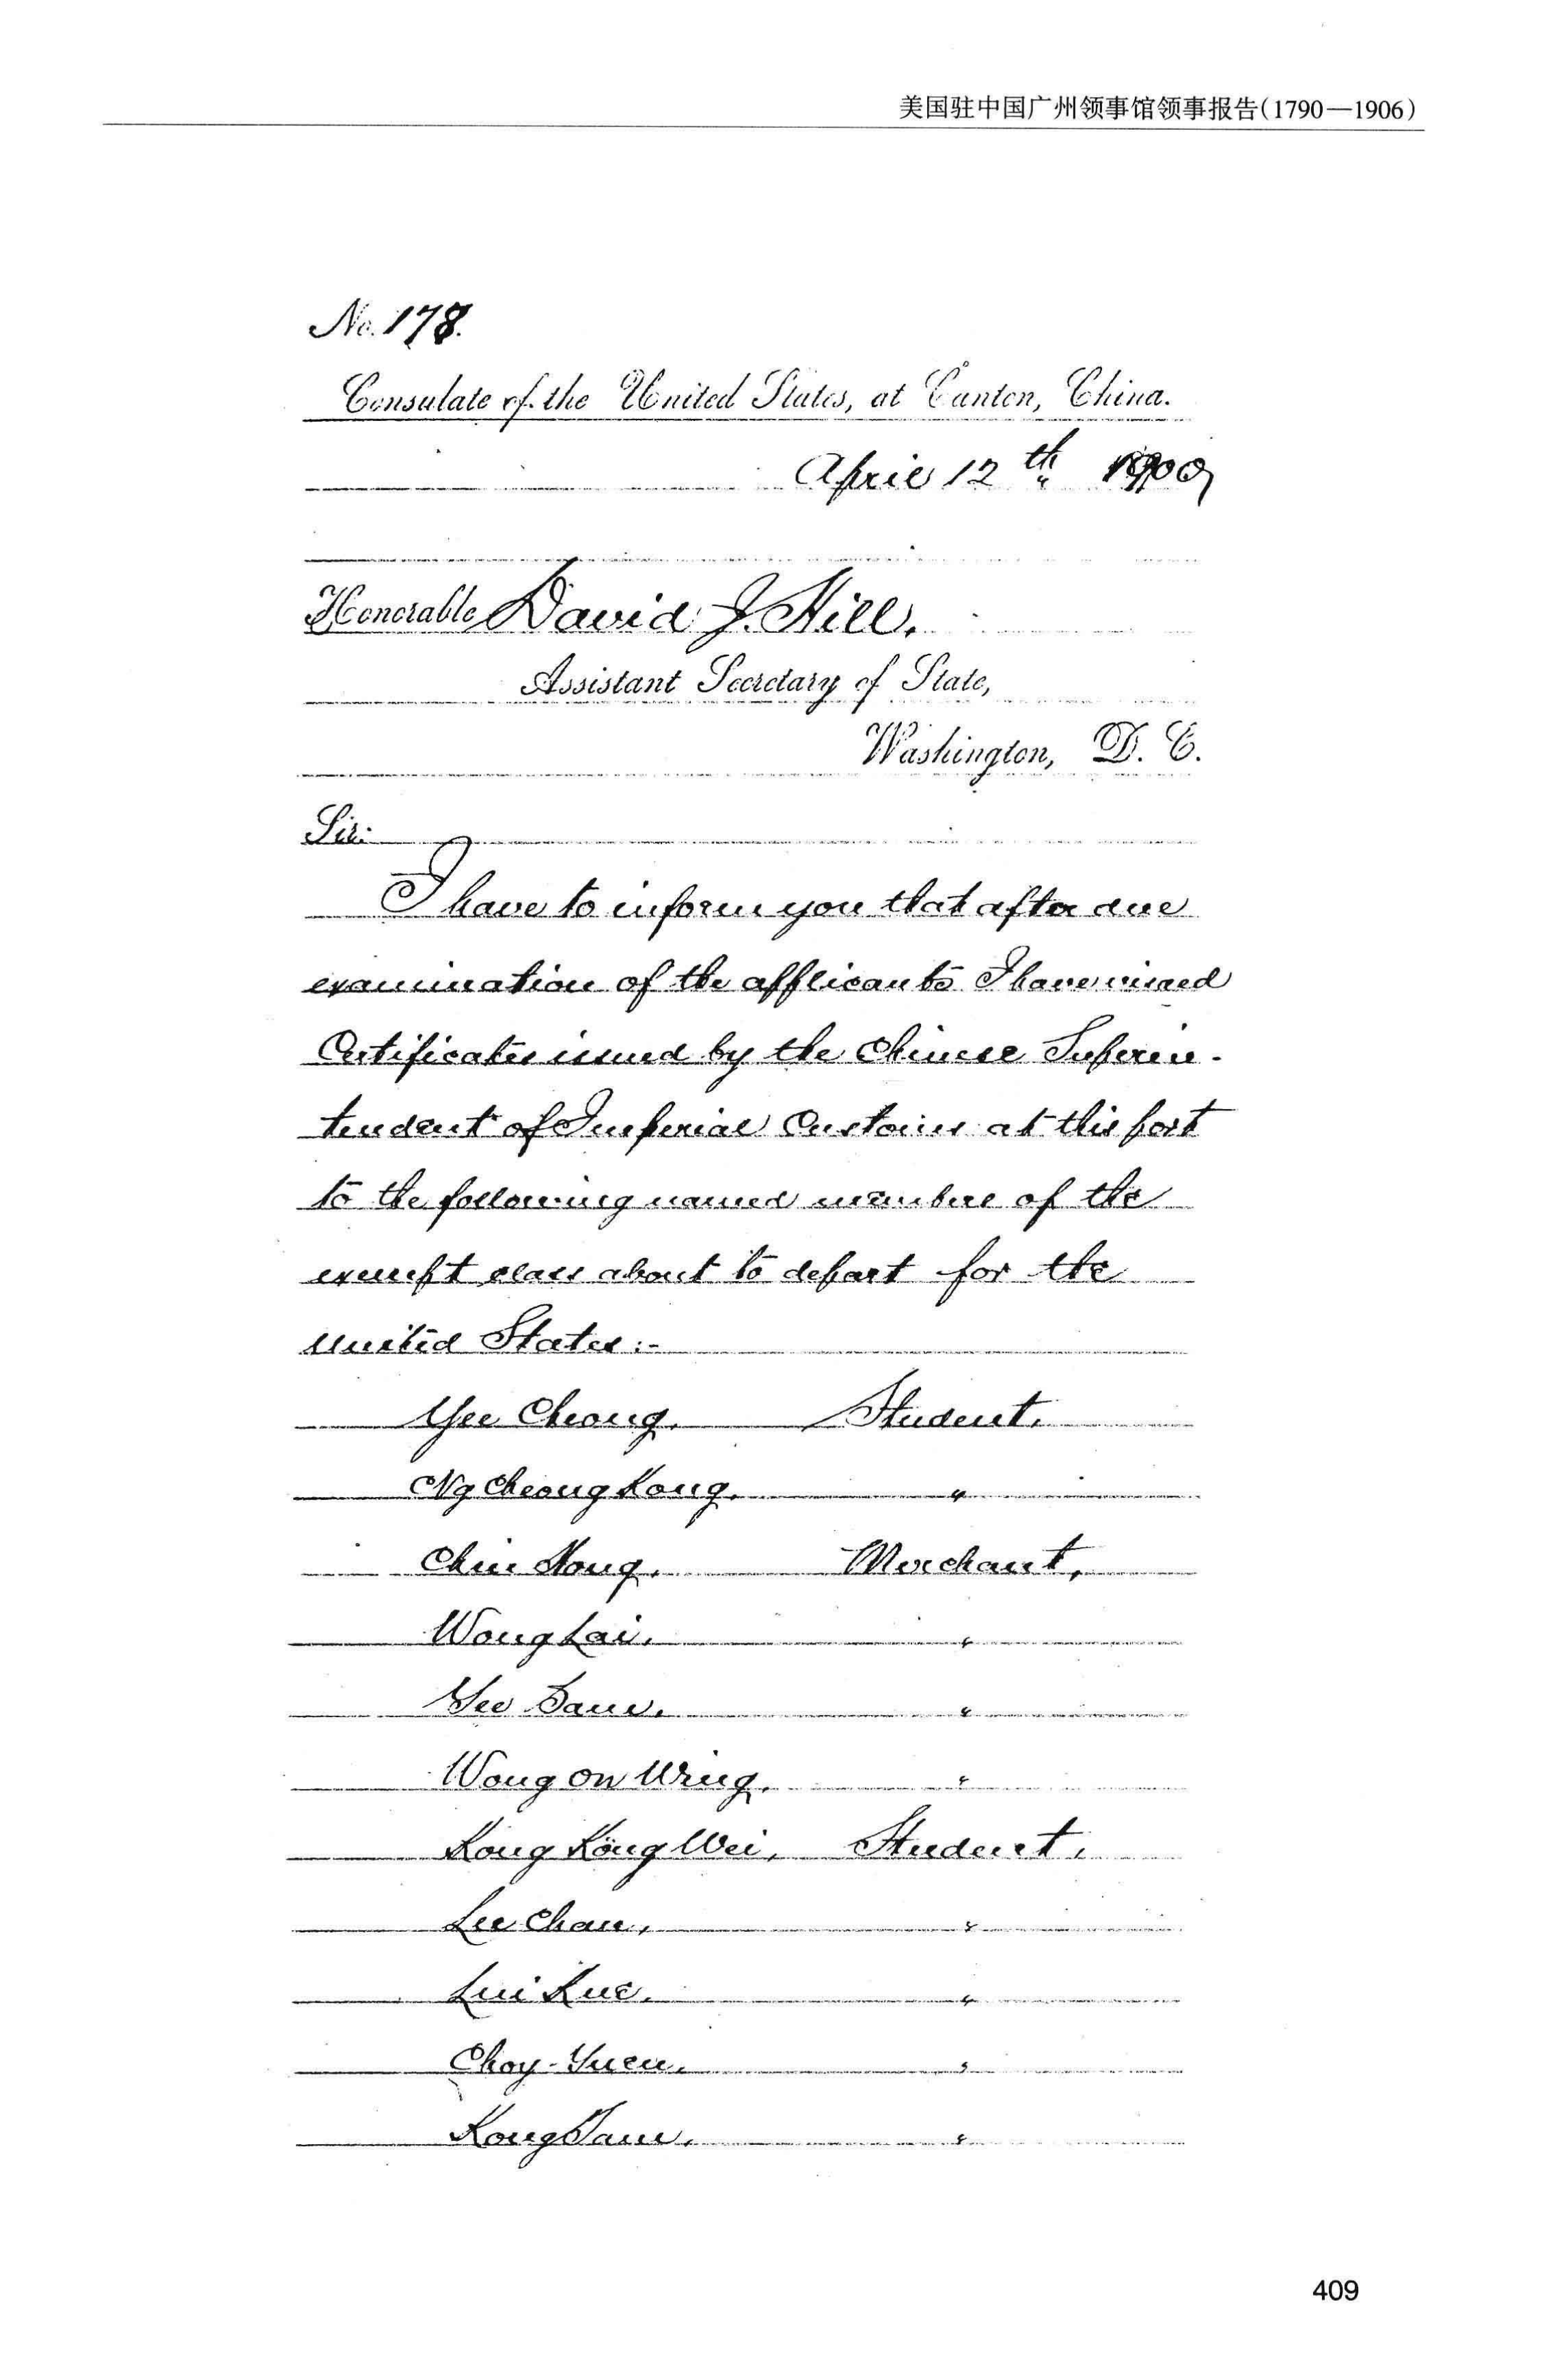 美国驻中国广州领事馆领事报告(1790—1906)
No. 178.
Consulate of the United States, at Canton, China.
April 12th 1900,
Honorable David J. Hill,
Assistant Secretary of State,
Washington, D. C.
Sir:
I have to inform you that after due
examination of the applicants I have visaed
Certificates issued by the Chinese Superin-
tendent of Imperial Customs at this port
to the following named members of the
exempt class about to depart for the
United States:-
Yee Cheong, Student,
Ng Cheong Kong, "
Chin Hong, Merchant,
Wong Lai, "
Yee Sam, "
Wong On Wing, "
Kong Kong Wei, Student,
Lee Chan, "
Lui Kue, "
Choy-Yuen, "
Kong Sam, "
409